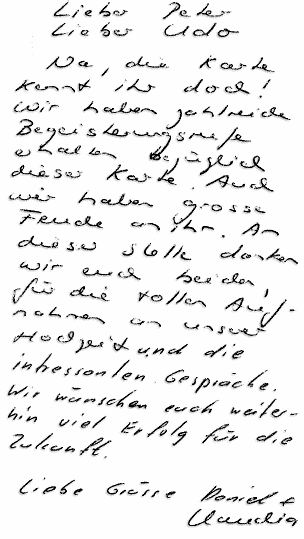 Lieber Peter
Lieber Udo
Na, die Karte
kennt ihr doch!
Wir haben zahlreiche
Begeisterungsrufe
erhalten bezüglich
dieser Karte. Auch
wir haben grosse
Freude an ihr. An
dieser Stelle danken
wir euch beiden
für die tollen Auf-
nahmen an unserer
Hochzeit und die
intressanten Gespräche.
Wir wünschen euch weiter-
hin viel Erfolg für die
Zukunft.
Liebe Grüsse Daniel +
Claudia